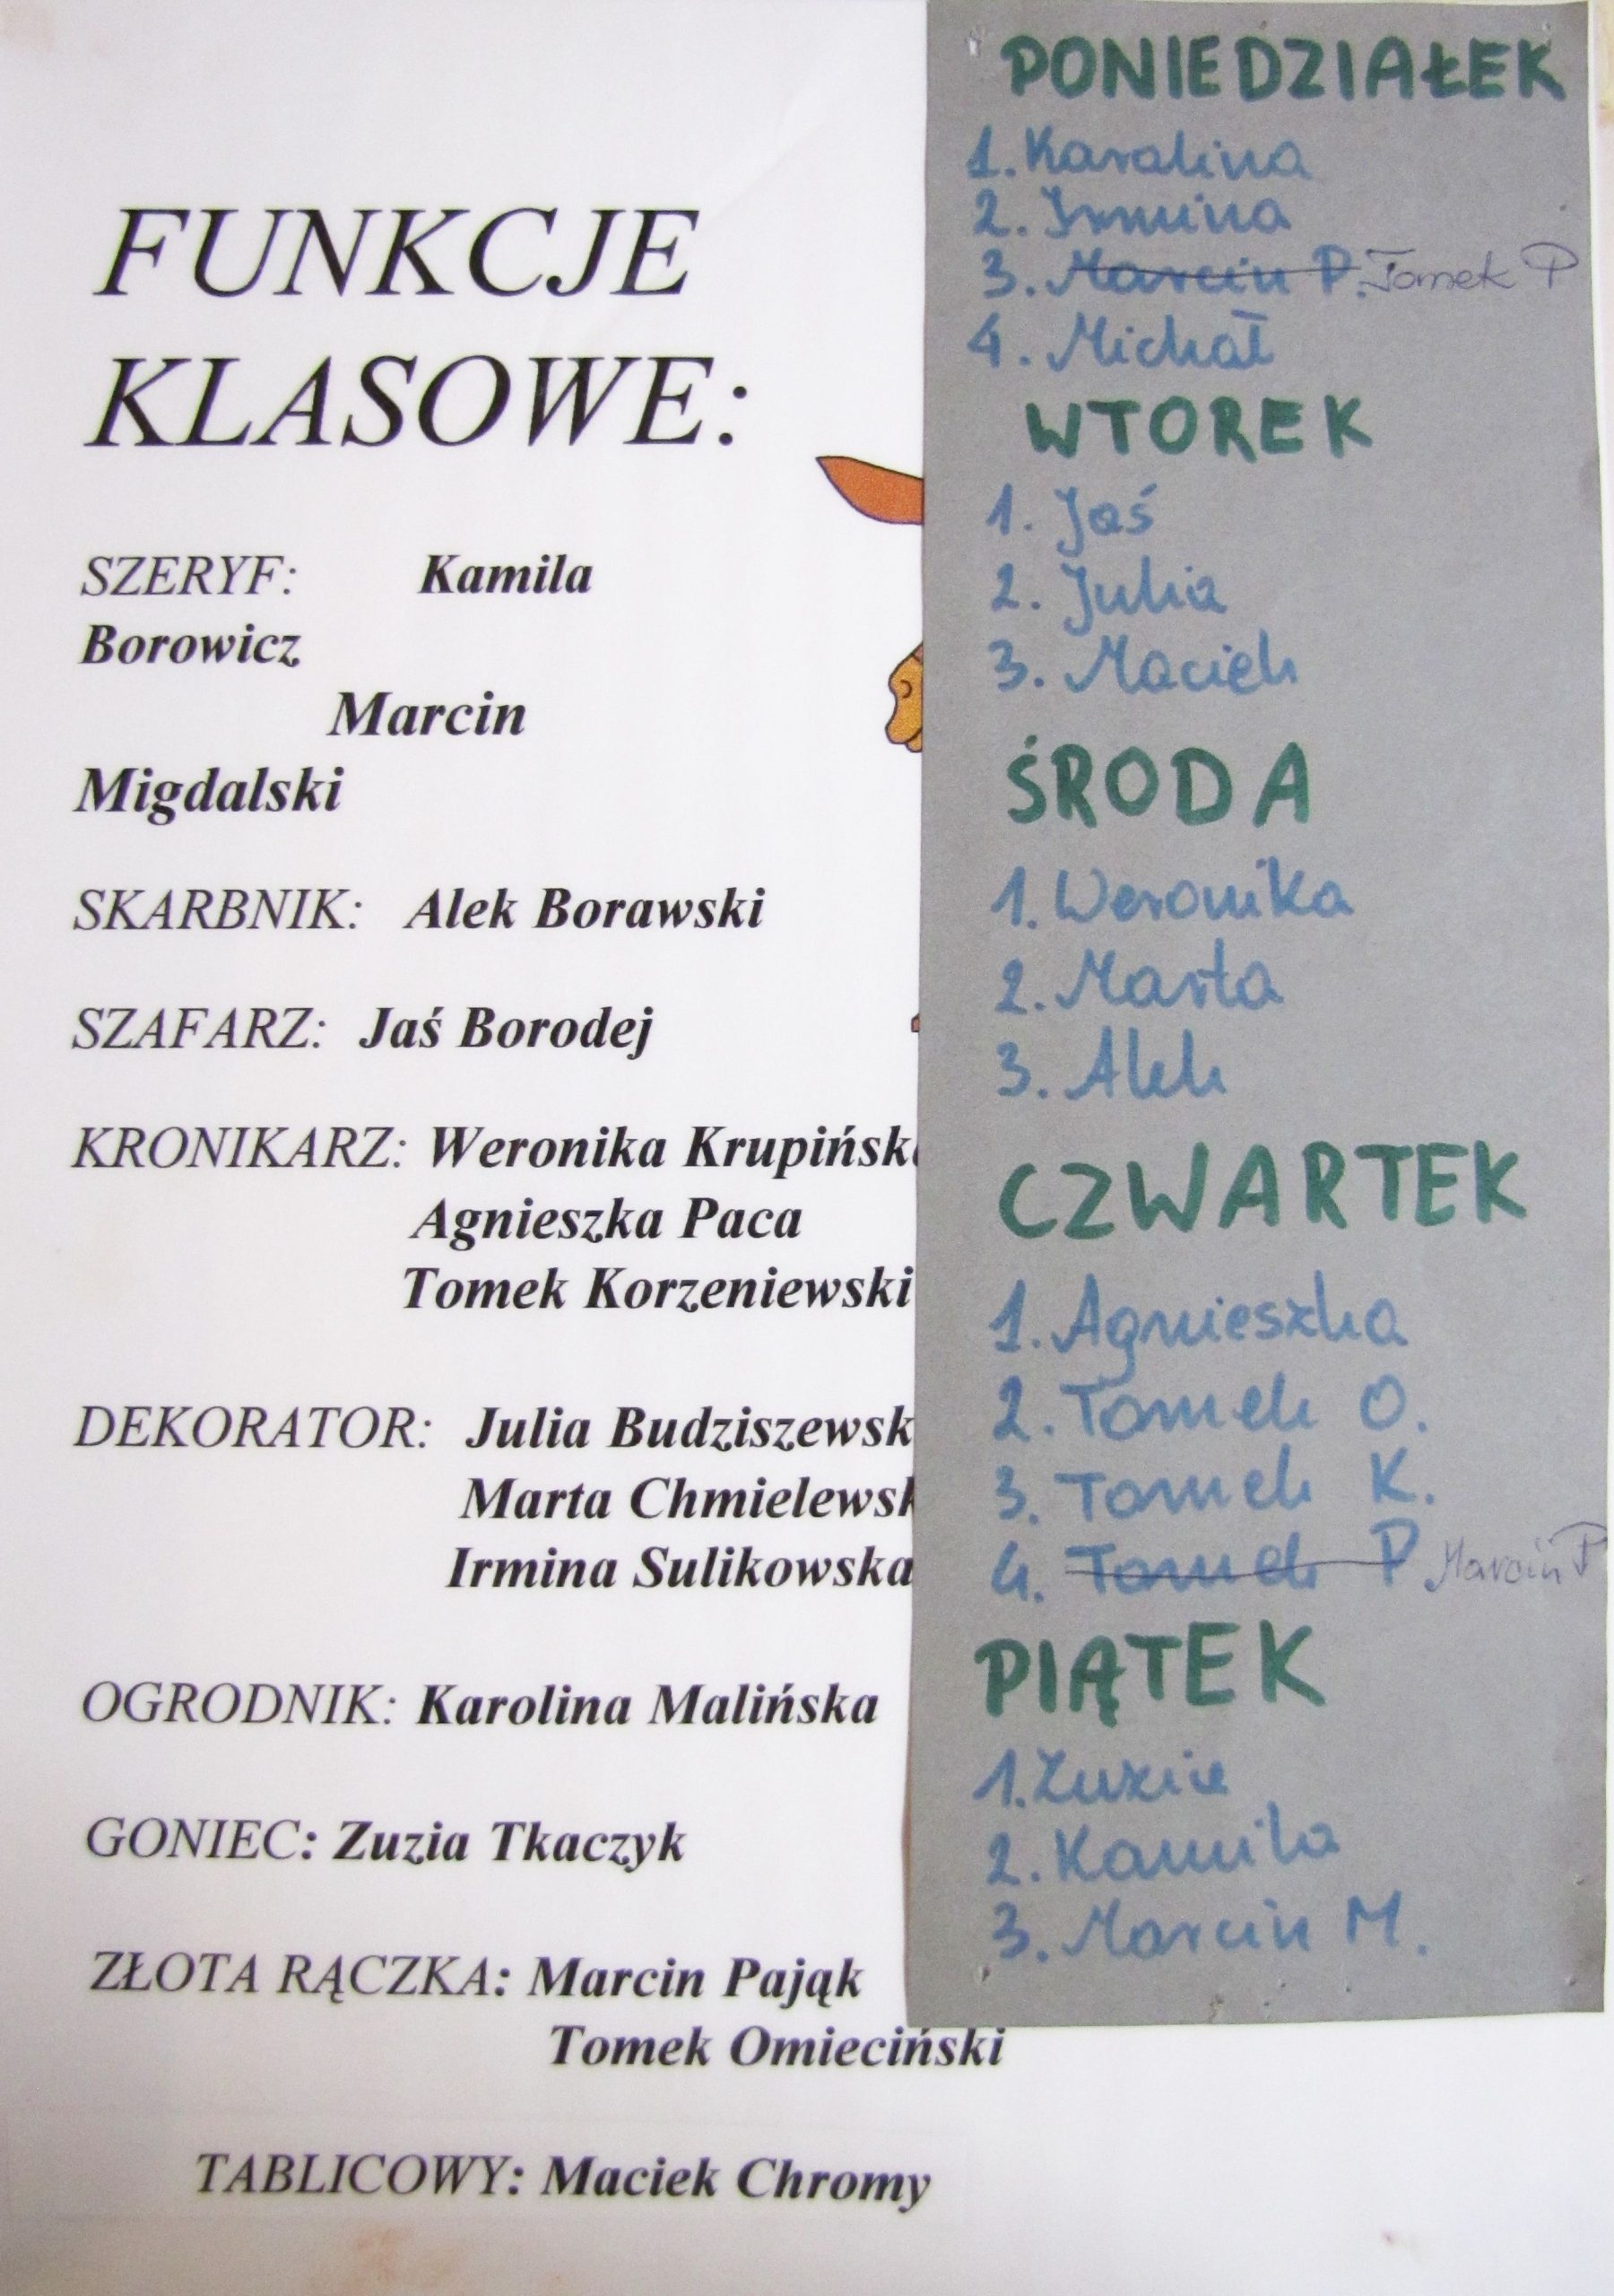 FUNKCJE
KLASOWE:
SZERYF: Kamila
Borowicz
Marcin
Migdalski
SKARBNIK: Alek Borawski
SZAFARZ: Jaś Borodej
KRONIKARZ: Weronika Krupińsk
Agnieszka Paca
Tomek Korzeniewski
DEKORATOR: Julia Budziszewsk
Marta Chmielewsk
Irmina Sulikowska
OGRODNIK: Karolina Malińska
GONIEC: Zuzia Tkaczyk
ZŁOTA RĄCZKA: Marcin Pająk
Tomek Omieciński
TABLICOWY: Maciek Chromy
PONIEDZIAŁEK
1. Karolina
2. Irmina
3. Marcin P. Tomek P
4. Michał
WTOREK
1. Jaś
2. Julia
3. Maciek
ŚRODA
1. Weronika
2. Marta
3. Alek
CZWARTEK
1. Agnieszka
2. Tomek O.
3. Tomek K.
4. Tomek P Marcin P
PIĄTEK
1. Zuzia
2. Kamila
3. Marcin M.